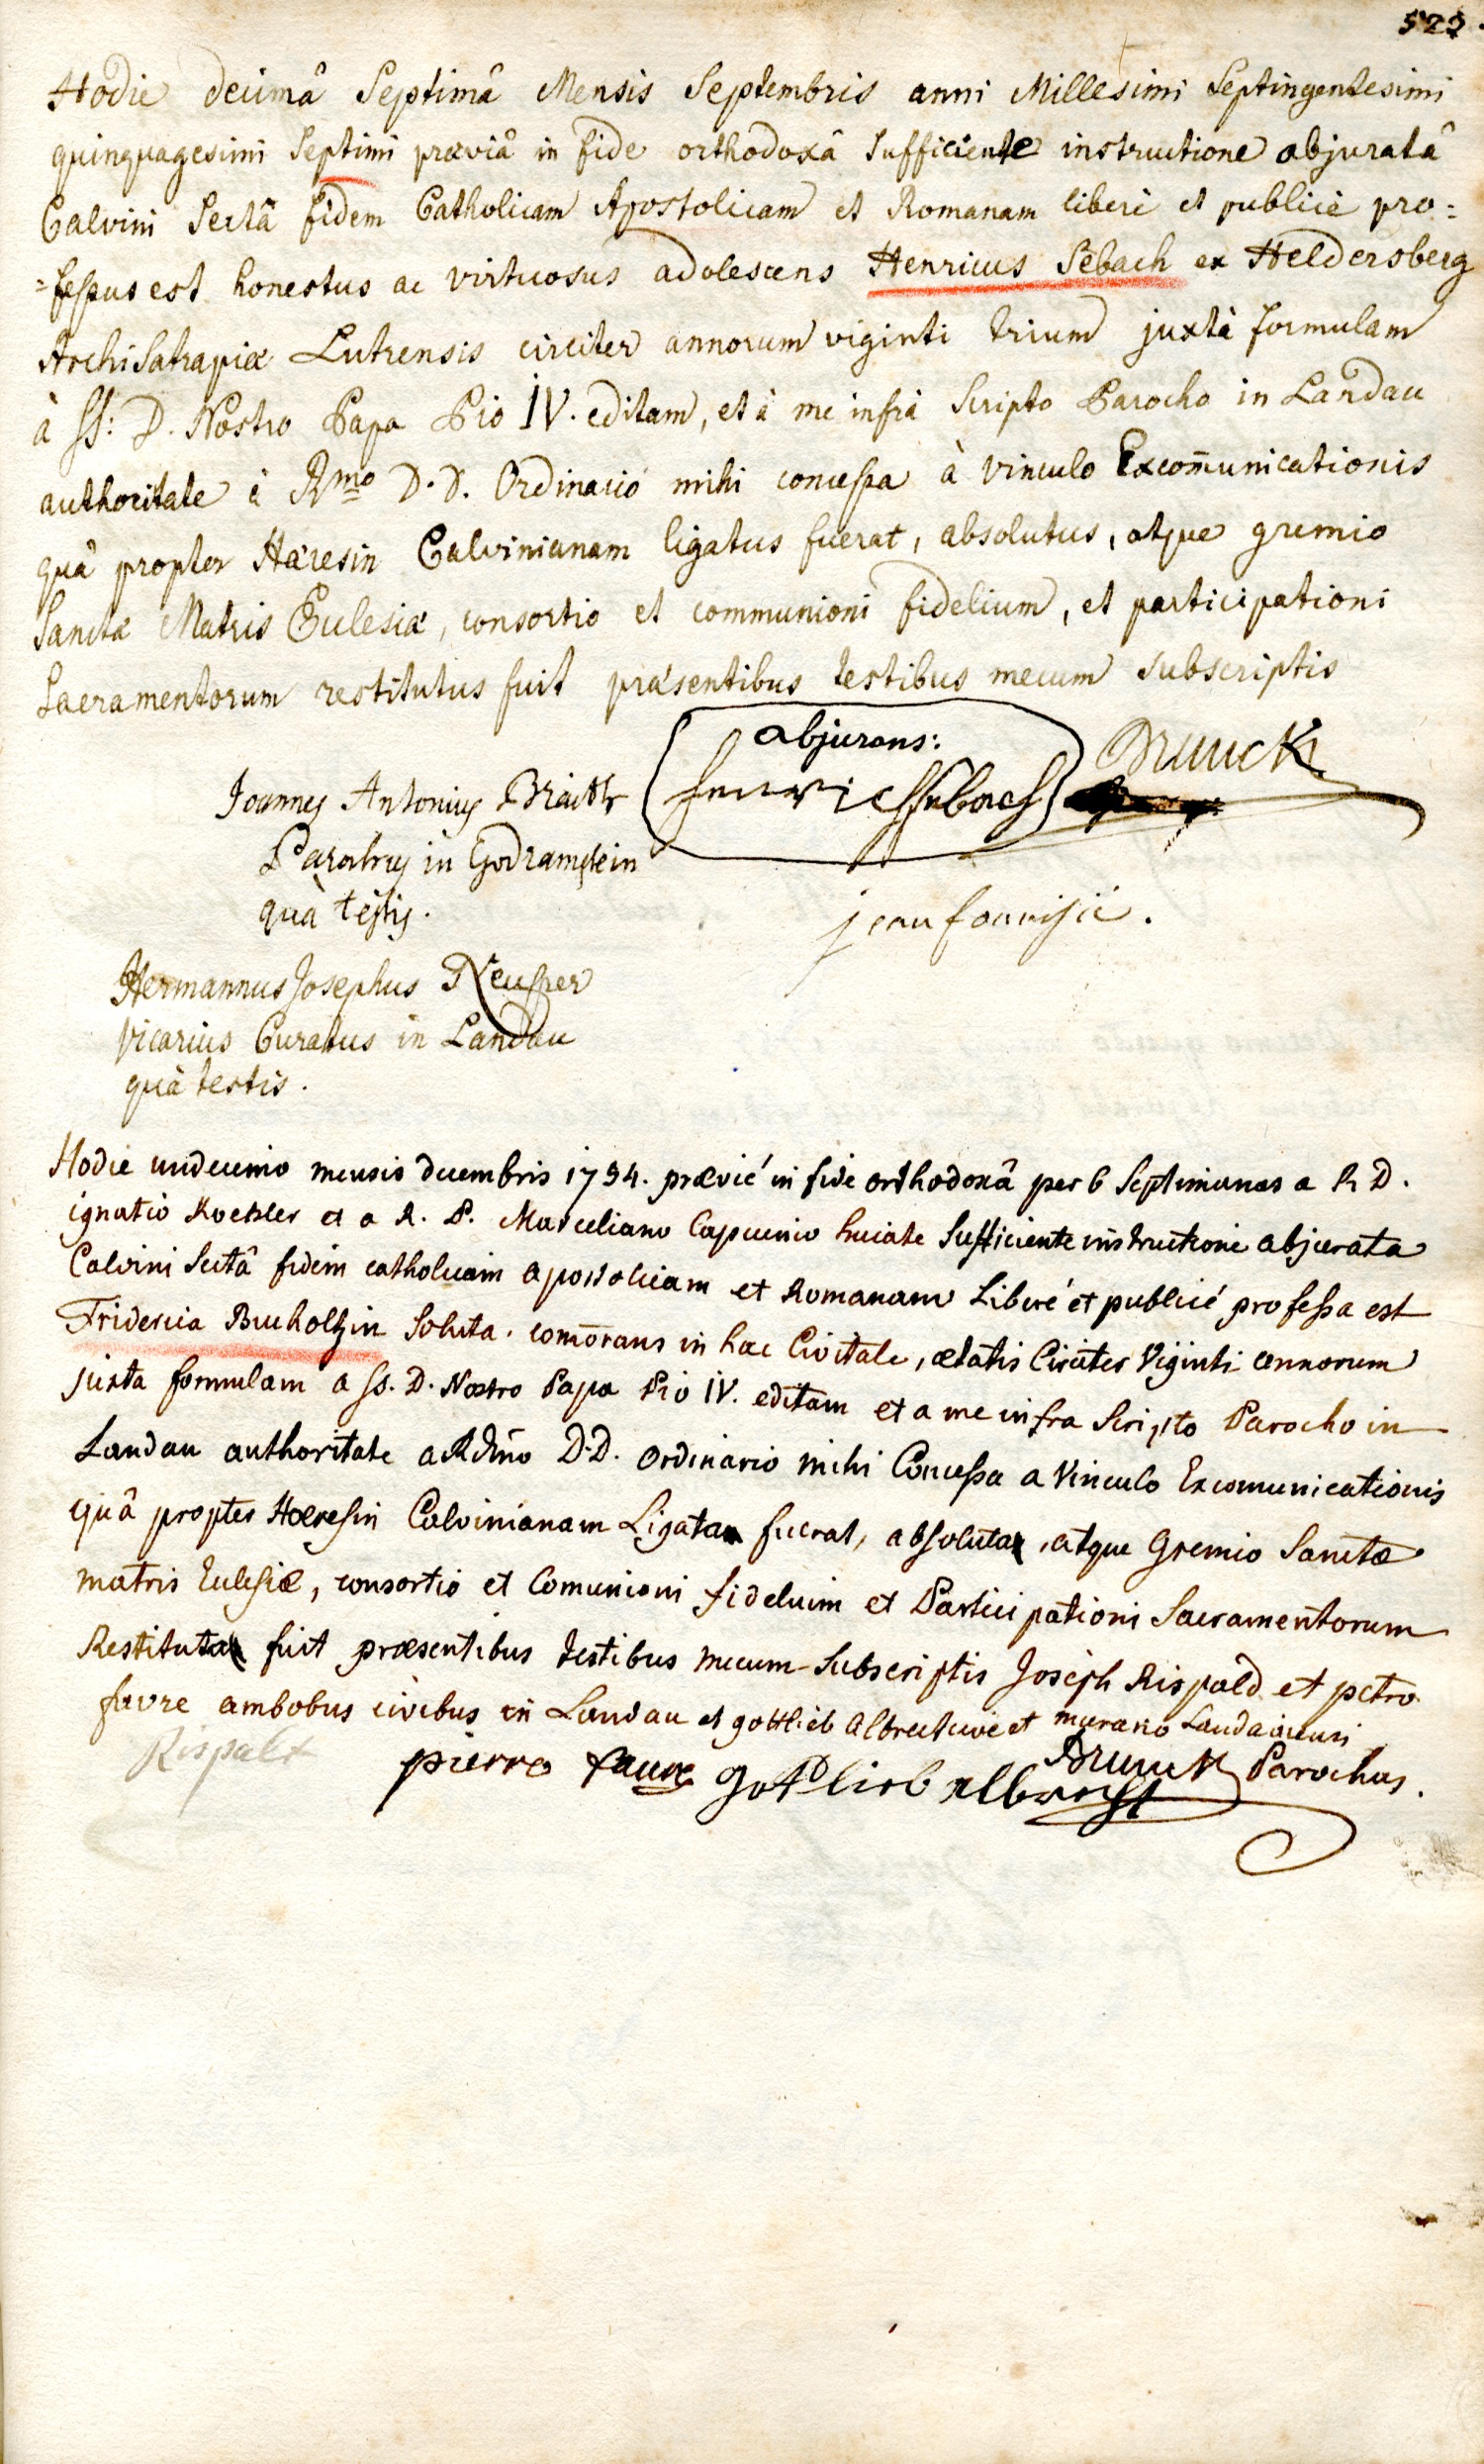 522.
Hodie decimâ Septimâ Mensis Septembris anni Millesimi Septingentesimi
quinquagesimi Septimi præviâ in fide orthodoxâ Sufficiente instructione abjuratâ
Calvini Sectâ fidem Catholicam Apostolicam et Romanam liberè et publicè pro=
=fessus est honestus ac virtuosus adolescens Henricus Sebach ex Heldersberg
ArchiSatrapiæ Lutrensis circiter annorum viginti trium juxtà formulam
à SS: D. Nostro Papa Pio IV. editam, et à me infrà Scripto Parocho in Landau
authoritate à Rmo D. D. Ordinario mihi concessa à vinculo Excom̄unicationis
quâ propter Hæresin Calvinianam ligatus fuerat, absolutus, atque gremio
Sanctæ Matris Ecclesiæ, consortio et communioni fidelium, et participationi
Sacramentorum restitutus fuit præsentibus testibus mecum subscriptis
abjurans:
Brunck
Joannes Antonius
henrich sebach
Parochus in Godramstein
quà testis.
jean
Hermannus Josephus
Vicarius Curatus in Landau
quà testis.
Hodie undecimo mensis decembris 1754. prævié in fide orthodoxâ per 6 Septimanas a R D.
ignatio Koehler et a R. P. Marceliano Capucino huiate Sufficiente instructione abjurata
Calvini Sectâ fidem catholicam apostolicam et Romanam Liberé et publicé professa est
Fridericia Bucholtzin Soluta. com̄orans in hac Civitate, ætatis Circiter Viginti annorum
juxta formulam a SS. D. Nostro Papa Pio IV. editam et a me infra Scripto Parocho in
Landau authoritate a Rdmo D.D. Ordinario mihi Concessa a Vinculo Excomunicationis
quâ propter Hæresin Calvinianam Ligata fuerat, absoluta, atque Gremio Sanctæ
matris Eclesiæ, consortio et Comunioni fidelium et Participationi Sacramentorum
Restituta fuit præsentibus testibus mecum Subscriptis Joseph Rispald et petro
favre ambobus civibus in Landau et gottlieb albrecht cive et murario Landaviensi
Rispalt
pierre faure gottlieb albrecht
Brunck Parochus.